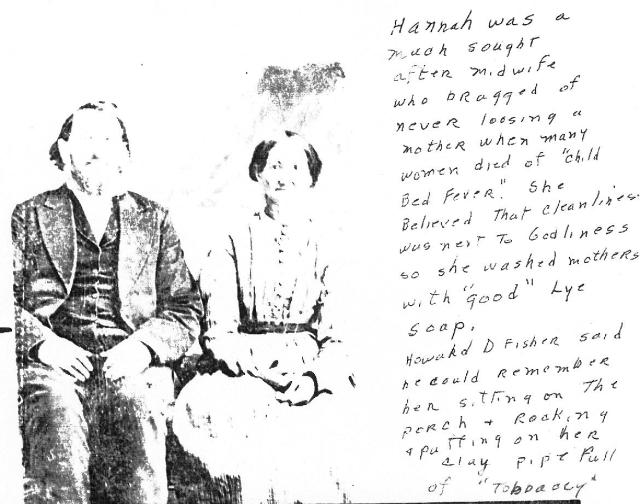 Hannah was a
much sought
after midwife
who bragged of
never loosing a
mother when many
women died of "Child
Bed Fever". She
Believed That Cleanlines
was next To Godliness
so she washed mothers
with "good" Lye
soap.
Howard D Fisher said
he could remember
her sitting on The
porch + Rocking
+ puffing on her
clay pipe full
of "Tobbaccy"